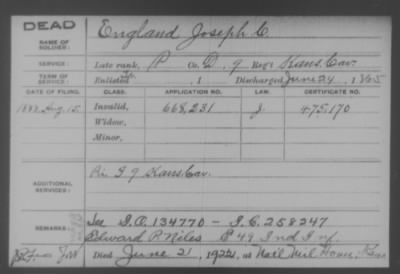 DEAD
NAME OF SOLDIER: England Joseph C.
SERVICE: Late rank, P Co. D, 9 Reg't Kans. Cav.
TERM OF SERVICE: Enlisted , 1 Discharged June 24, 1865
DATE OF FILING. CLASS. APPLICATION NO. LAW. CERTIFICATE NO.
1888 Aug. 15. Invalid, 668,231 J. 475,170
Widow,
Minor,
ADDITIONAL SERVICES: I 9 Kans. Cav.
REMARKS: See I.O. 134770 – I.C. 258247
Edward P. Niles E 49 Ind Inf.
Died June 21, 1922, at Natl Mil Home, Kas